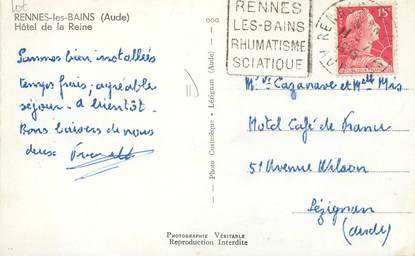 lot
RENNES-les-BAINS (Aude)
Hôtel de la Reine
Sommes bien installées
temps frais, agréable
séjour - à bientôt.
Bons baisers de nous
deux
RENNES
LES-BAINS
RHUMATISME
SCIATIQUE
15F
Mr Vve Cazanave et Melle Mis
Hotel Café de France
51 Avenue Wilson
Lézignan
(Aude)
— Photo Castanéque - Lézignan (Aude) —
Photographie Véritable
Reproduction Interdite